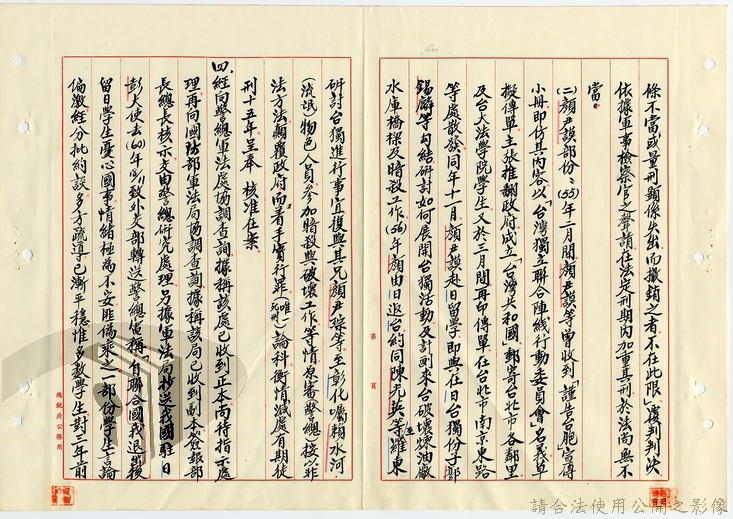 條不當,或量刑顯係失出而撤銷之者,不在此限」,復判判決
依據軍事檢察官之聲請在法定刑期內加重其刑,於法尚無不
當。
(二)顏尹謨部份:(55)年二月間顏尹謨等曾收到「謹告台胞」宣傳
小冊,即仿其內容以「台灣獨立聯合陣線行動委員會」名義草
擬傳單,主張推翻政府,成立「台灣共和國」,郵寄台北市各鄰里
及台大法學院學生,又於三月間再印傳單,在台北市南京東路
等處散發,同年十一月顏尹謨赴日留學,即與在日台獨份子郭
錫麟等勾結,研討如何展開台獨活動及計劃來台破壞煉油廠
水庫橋樑及暗殺工作,(56)年顏由日返台,約同陳光英等至羅東
研討台獨進行事宜,復與其兄顏尹琮等至彰化囑賴水河
(流氓)物色人員,參加暗殺與破壞工作等情,原審(警總)按以非
法方法顛覆政府而著手實行罪(唯一死刑)論科,衡情減處有期徒
刑十五年,呈奉 核准在案。
四、經向警總軍法處協調查詢,據稱該處已收到正本,尚待指示處
理,再向國防部軍法局協調查詢,據稱該局已收到副本,簽報部
長、總長核示,交由警總研究處理,另據軍法局抄送我國駐日
彭大使去(60)年致外交部轉送警總電稱「自聯合國我退出後
留日學生憂心國事,情緒極為不安,匪偽乘之,一部份學生言論
偏激,經分批約談,多方疏導,已漸平穩,惟多數學生對三年前
第 頁
總統府公務用
請合法使用公開之影像